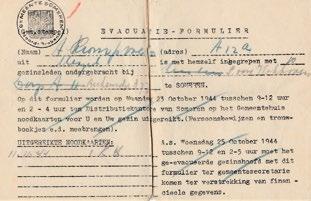 GEMEENTE SOMEREN
EVACUATIE-FORMULIER
(Naam) (adres) A 12a
uit is met hemzelf ingegrepen met 10
gezinsleden ondergebracht bij
Dorp SOMEREN.
Op dit formulier worden op Maandag 23 October 1944 tusschen 9-12 uur
en 2-4 uur ten Distributiekantore van Someren op het Gemeentehuis
noodkaarten voor U en Uw gezin uitgereikt. (Persoonsbewijzen en trouw-
boekjes e.d. meebrengen).
UITGEREIKTE NOODKAARTEN:
A.s. Woensdag 25 October 1944
tusschen 9-12 en 2-5 uur moet het
ge-evacueerde gezinshoofd met dit
formulier ter gemeentesecretarie
komen ter verstrekking van finan-
cieele gegevens.